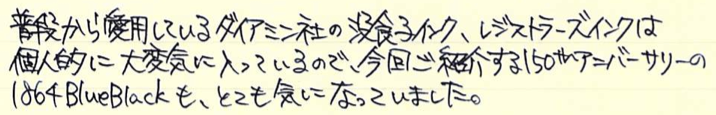 普段から愛用しているダイアミン社の没食子インク、レジストラーズインクは
個人的に大変気に入っているので、今回ご紹介する150thアニバーサリーの
1864BlueBlackも、とても気になっていました。